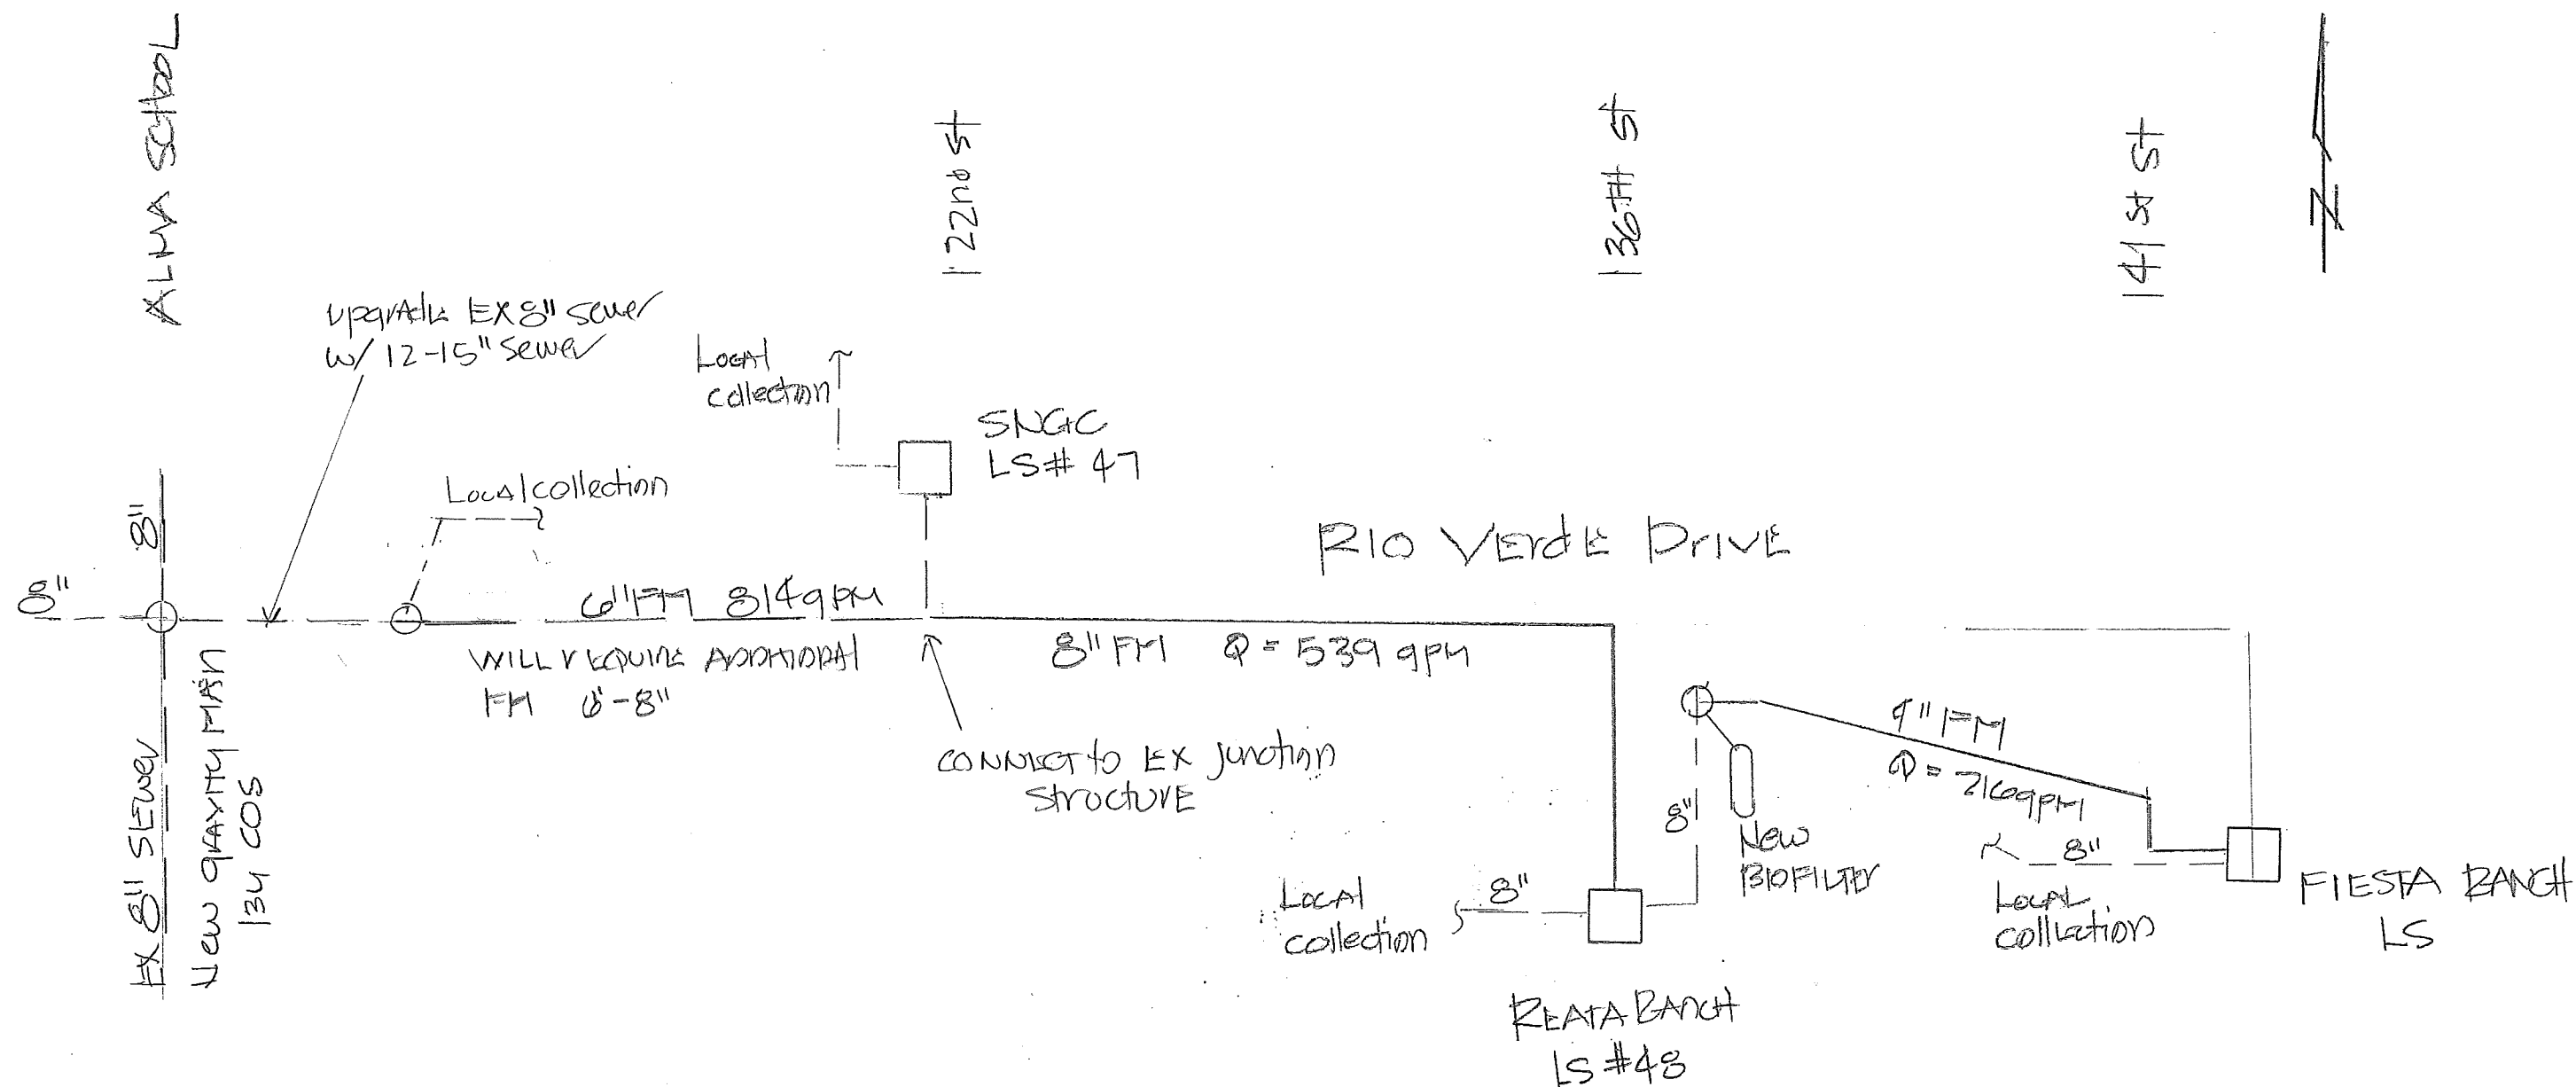 ALMA SCHOOL
122nd St
136TH St
141 St St
N
upgrade EX 8" sewer
w/ 12-15" sewer
Local
collection
SNGC
LS# 47
Local collection
8"
8"
6" FM 814 gpm
RIO VERDE DRIVE
WILL REQUIRE ADDITIONAL
FM 6"-8"
8" FM Q = 539 gpm
CONNECT to EX junction
structure
EX 8" SEWER
New gravity MAIN
134 COS
4" FM
Q = 216 gpm
8"
New
BIOFILTER
8"
Local
collection
8"
Local
collection
FIESTA RANCH
LS
REATA RANCH
LS #48